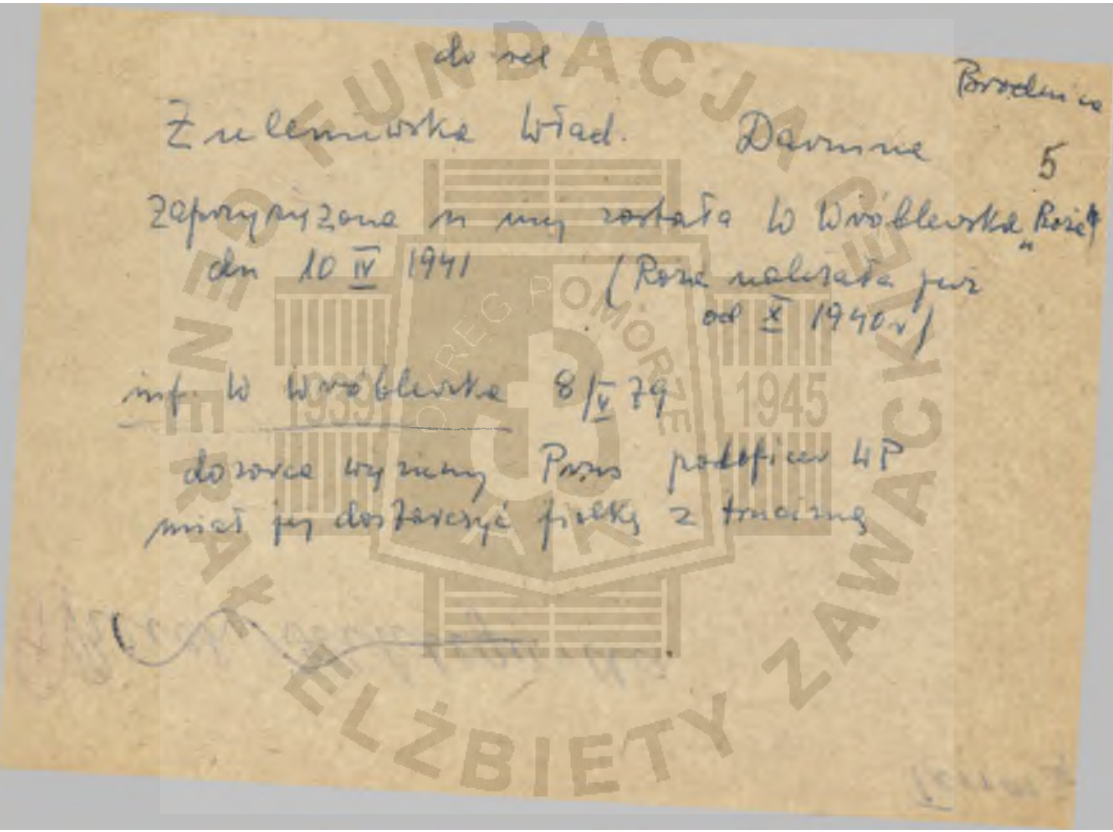 do rel
Brodnica
Zulewiwska Wład. Darmina
5
zaprzysiężona u niej została W Wróblewska „Róża”
dn 10 IV 1941 (Róża należała już
od X 1940 r)
inf. W Wróblewska 8/V 79
dozorca więzienny Prus podoficer WP
miał jej dostarczyć fiolkę z trucizną
FUNDACJA GENERAŁ ELŻBIETY ZAWACKIEJ
OKRĘG POMORZE
1939 1945
AK